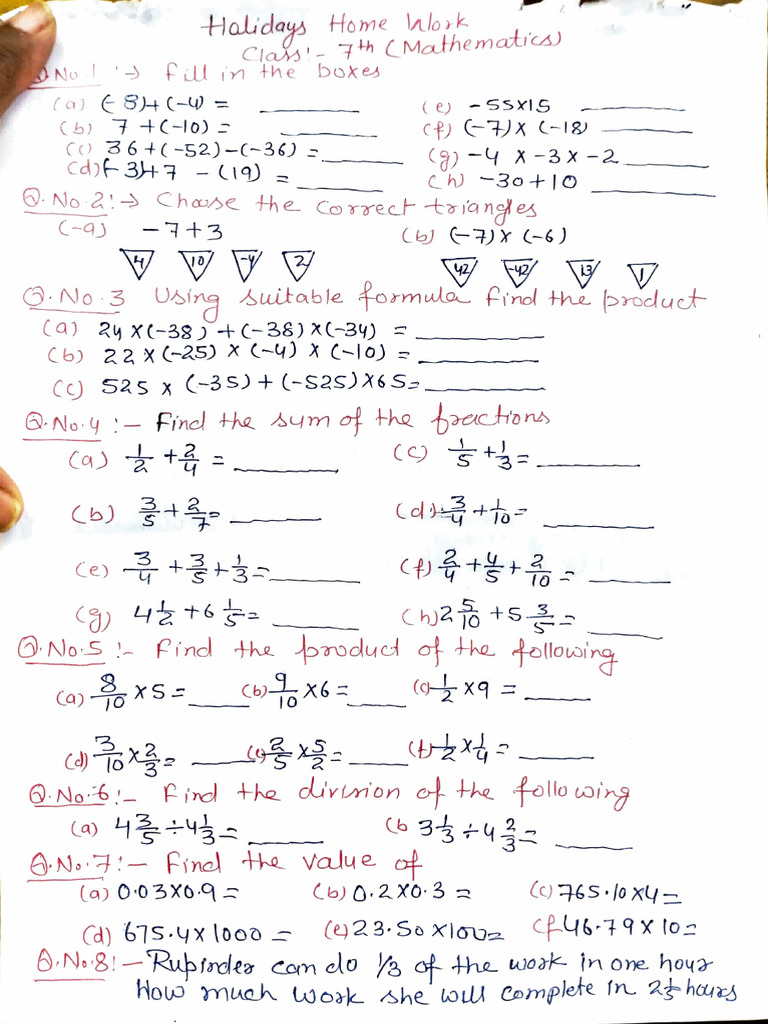 Halidays Home Work
Class:- 7th (Mathematics)
Q.No.1:→ Fill in the boxes
(a) (-8)+(-4) = ______ (e) -55x15 ______
(b) 7 +(-10) = ______ (f) (-7) x (-18) ______
(c) 36+(-52)-(-36) = ______ (g) -4 x -3 x -2 ______
(d) (-3)+7 - (19) = ______ (h) -30+10 ______
Q.No.2:→ Choose the correct triangles
(-a) -7+3 (b) (-7) x (-6)
4 10 -4 2 42 -42 13 1
Q.No.3 Using suitable formula find the product
(a) 24 x(-38) +(-38) x(-34) = ______
(b) 22 x(-25) x (-4) x (-10) = ______
(c) 525 x (-35) + (-525) x65= ______
Q.No.4 :- Find the sum of the fractions
(a) 1/2 + 2/4 = ______ (c) 1/5 + 1/3 = ______
(b) 3/5 + 2/7 = ______ (d) 3/4 + 1/10 = ______
(e) 3/4 + 3/5 + 1/3 = ______ (f) 2/4 + 4/5 + 2/10 = ______
(g) 4 1/2 + 6 1/5 = ______ (h) 2 5/10 + 5 3/5 = ______
Q.No.5 :- Find the product of the following
(a) 8/10 x 5 = ______ (b) 9/10 x 6 = ______ (c) 1/2 x 9 = ______
(d) 3/10 x 2/3 = ______ (e) 2/5 x 5/2 = ______ (f) 1/2 x 1/4 = ______
Q.No.6:- Find the division of the following
(a) 4 3/5 ÷ 4 1/3 = ______ (b 3 1/3 ÷ 4 2/3 = ______
Q.No.7:- Find the value of
(a) 0.03x0.9 = (b) 0.2x0.3 = (c) 765.10x4=
(d) 675.4x1000 = (e) 23.50x100= (f 46.79x10=
Q.No.8:- Rupinder can do 1/3 of the work in one hour
How much work she will complete in 2 1/5 hours